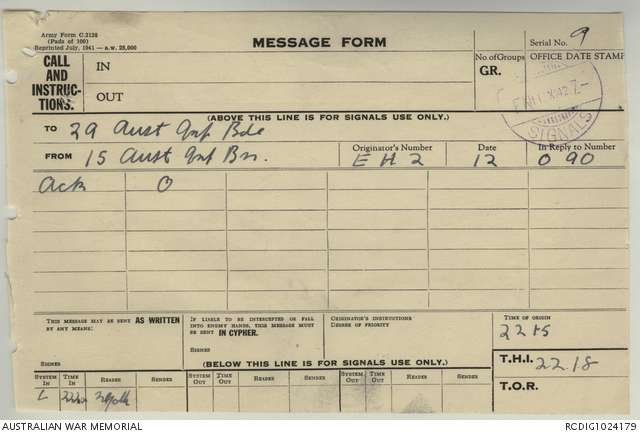 Army Form C.2128
(Pads of 100)
Reprinted July, 1941 — a.w. 25,000
MESSAGE FORM
Serial No. 9
CALL AND INSTRUC-TIONS.
IN
OUT
No. of Groups
GR.
OFFICE DATE STAMP
SIGNALS
(ABOVE THIS LINE IS FOR SIGNALS USE ONLY.)
TO 29 Aust Inf Bde
FROM 15 Aust Inf Bn.
Originator's Number
EH2
Date
12
In Reply to Number
O 90
Ack O
THIS MESSAGE MAY BE SENT AS WRITTEN BY ANY MEANS:
SIGNED
IF LIABLE TO BE INTERCEPTED OR FALL INTO ENEMY HANDS, THIS MESSAGE MUST BE SENT IN CYPHER.
SIGNED
ORIGINATOR'S INSTRUCTIONS
DEGREE OF PRIORITY
TIME OF ORIGIN
2215
(BELOW THIS LINE IS FOR SIGNALS USE ONLY.)
T.H.I. 2218
T.O.R.
SYSTEM IN TIME IN READER SENDER SYSTEM OUT TIME OUT READER SENDER SYSTEM OUT TIME OUT READER SENDER
L
AUSTRALIAN WAR MEMORIAL
RCDIG1024179